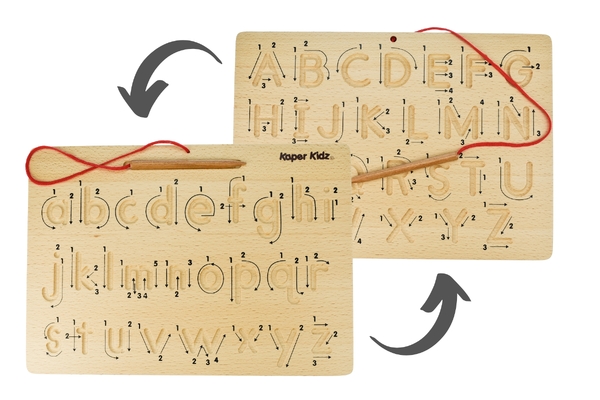 Kaper Kidz
a b c d e f g h i
j k l m n o p q r
s t u v w x y z
A B C D E F G
H I J K L M N
R S T U
X Y Z